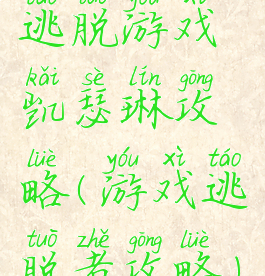 逃脱游戏
kǎi sè lín gōng
凯瑟琳攻
lüè yóu xì táo
略(游戏逃
tuō zhě gōng lüè
脱者攻略)